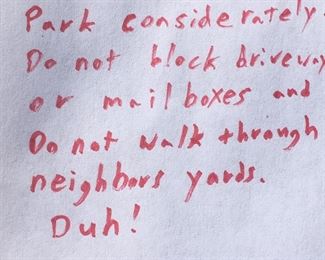 Park considerately
Do not block driveway
or mailboxes and
Do not walk through
neighbors yards.
Duh!